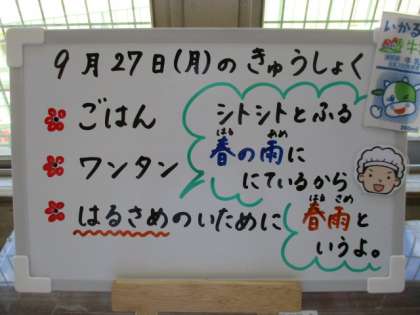 9月27日(月)のきゅうしょく
ごはん
ワンタン
はるさめのいために
シトシトとふる
はる あめ
春の雨に
にているから
はる さめ
春雨と
いうよ。
いかる
牛